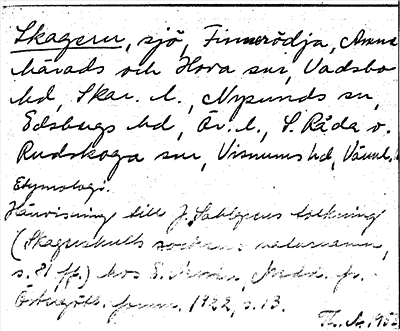 Skagern, sjö, Finnerödja, Amne
härads och Hova snr, Vadsbo
hd, Skar. l., Nysunds sn,
Edsbergs hd, Ör. l., S. Råda o.
Rudskoga snr, Visnums hd, Värml.
Etymologi.
Hänvisning till J. Sahlgrens tolkning
(Skagershults sockens naturnamn,
s. 81 ff.) hos S. Medd. fr.
Östergötl. 1922, s. 13.